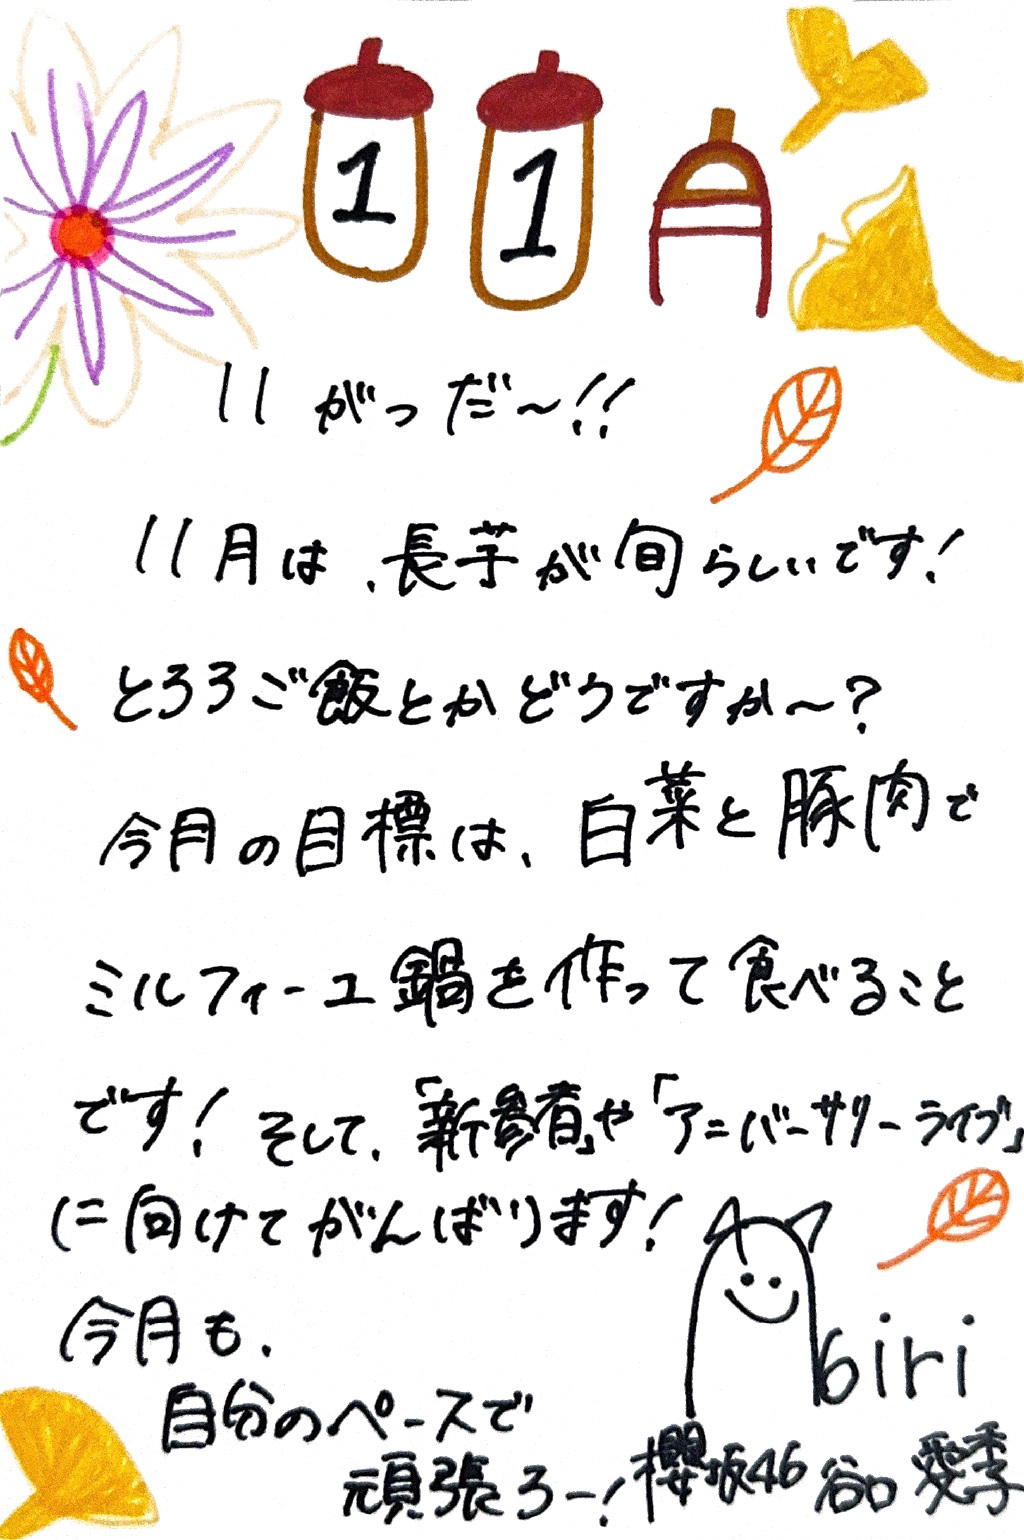 11月
11 がっだ〜!!
11月は、長芋が旬らしいです!
とろろご飯とかどうですか〜?
今月の目標は、白菜と豚肉で
ミルフィーユ鍋を作って食べること
です!そして、「新参者」や「アニバーサリーライブ」
に向けてがんばります!
今月も、
自分のペースで
頑張ろー!
biri
櫻坂46 谷口 愛季